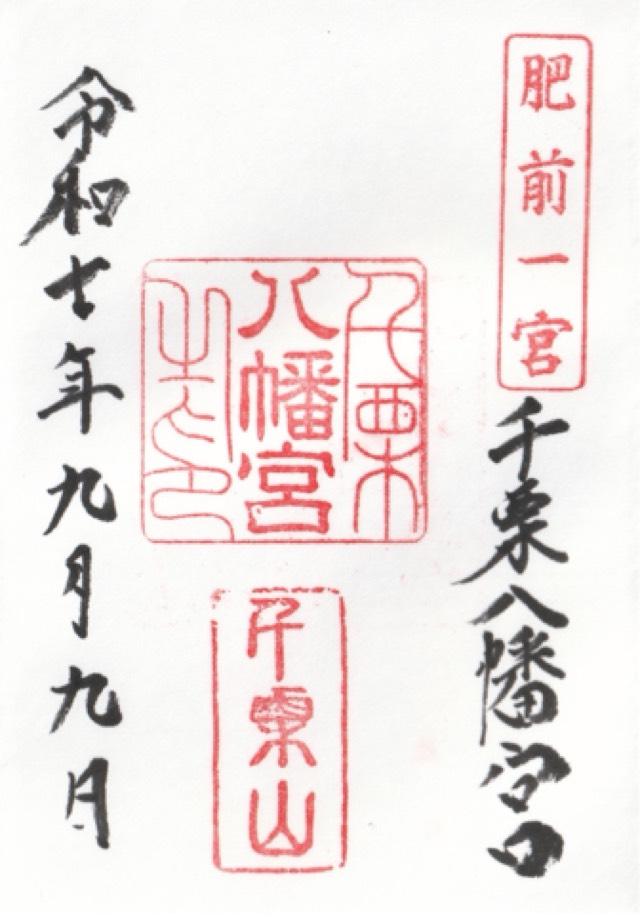 肥前一宮
千栗八幡宮
千栗
八幡宮
之印
千栗山
令和七年九月九日